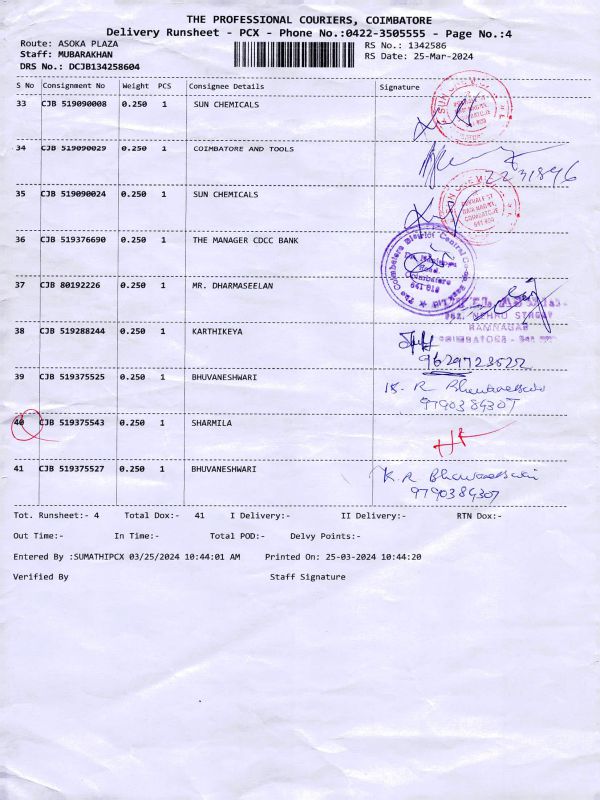 THE PROFESSIONAL COURIERS, COIMBATORE
Delivery Runsheet - PCX - Phone No.:0422-3505555 - Page No.:4
Route: ASOKA PLAZA
Staff: MUBARAKHAN
DRS No.: DCJB134258604
RS No.: 1342586
RS Date: 25-Mar-2024
S No Consignment No Weight PCS Consignee Details Signature
33 CJB 519090008 0.250 1 SUN CHEMICALS
34 CJB 519090029 0.250 1 COIMBATORE AND TOOLS
2231896
35 CJB 519090024 0.250 1 SUN CHEMICALS
36 CJB 519376690 0.250 1 THE MANAGER CDCC BANK
37 CJB 80192226 0.250 1 MR. DHARMASEELAN
NEHRU STREET
RAMNAGAR
COIMBATORE
38 CJB 519288244 0.250 1 KARTHIKEYA
9629723522
39 CJB 519375525 0.250 1 BHUVANESHWARI
9790384307
40 CJB 519375543 0.250 1 SHARMILA
41 CJB 519375527 0.250 1 BHUVANESHWARI
K. R Bhuvaneshwari
9790384307
Tot. Runsheet:- 4 Total Dox:- 41 I Delivery:- II Delivery:- RTN Dox:-
Out Time:- In Time:- Total POD:- Delvy Points:-
Entered By :SUMATHIPCX 03/25/2024 10:44:01 AM Printed On: 25-03-2024 10:44:20
Verified By Staff Signature